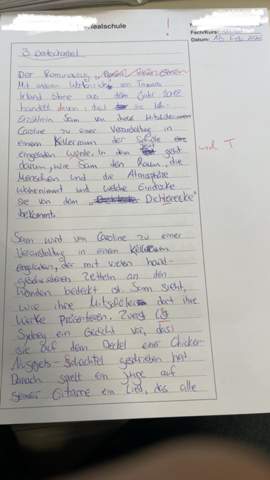 Realschule
Fach/Kurs:
Datum: 14. Feb.
3. Deutscharbeit
Der Romanauszug
Mit anderen Worten ich von Tamara
Ireland Stone aus dem Jahr 2018
handelt davon, dass die Ich-
Erzählerin Sam von ihrer Mitschülerin
Caroline zu einer Veranstaltung in
einem Kellerraum der Schule
eingeladen wurde. In dem Text geht
darum, wie Sam den Raum, die
Menschen und die Atmosphäre
wahrnimmt und welche Eindrücke
sie von dem "Dichterecke"
bekommt.
und T
Sam wird von Caroline zu einer
Veranstaltung in einem Kellerraum
eingeladen, der mit vielen hand-
geschriebenen Zetteln an den
Wänden bedeckt ist. Sam sieht,
wie ihre Mitschüler dort ihre
Werke präsentieren. Zuerst
Sydney ein Gedicht vor, dass
sie auf dem Deckel einer Chicken-
Nuggets-Schachtel geschrieben hat
Danach spielt ein Junge auf
seiner Gitarre ein Lied, das alle